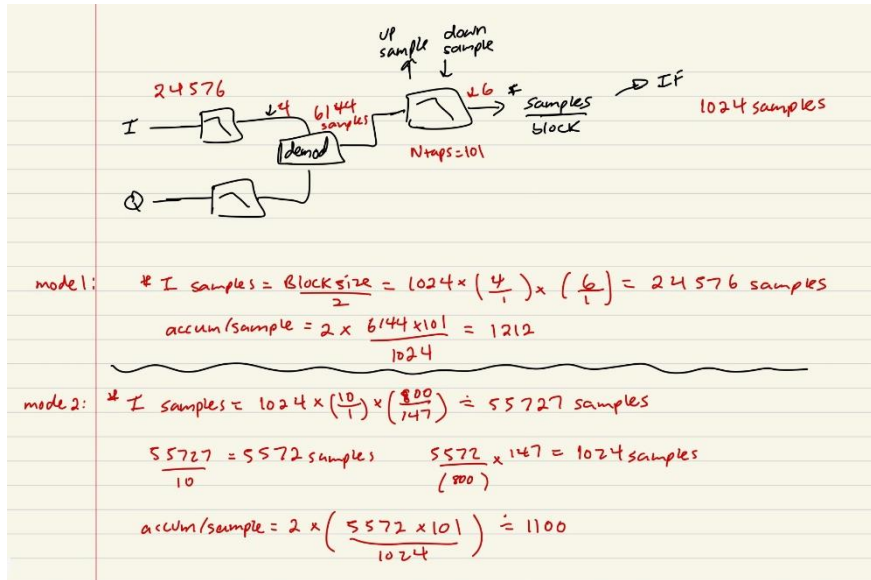 up sample
down sample
24576
↓4
6144 samples
↓6
* samples/block
→ IF
1024 samples
I
demod
Ntaps=101
Q
mode 1: * I samples = Block size/2 = 1024 × (4/1) × (6/1) = 24576 samples
accum/sample = 2 × 6144×101/1024 = 1212
mode 2: * I samples = 1024 × (10/1) × (800/147) ≐ 55727 samples
55727/10 = 5572 samples 5572/(800) × 147 = 1024 samples
accum/sample = 2 × (5572 × 101/1024) ≐ 1100